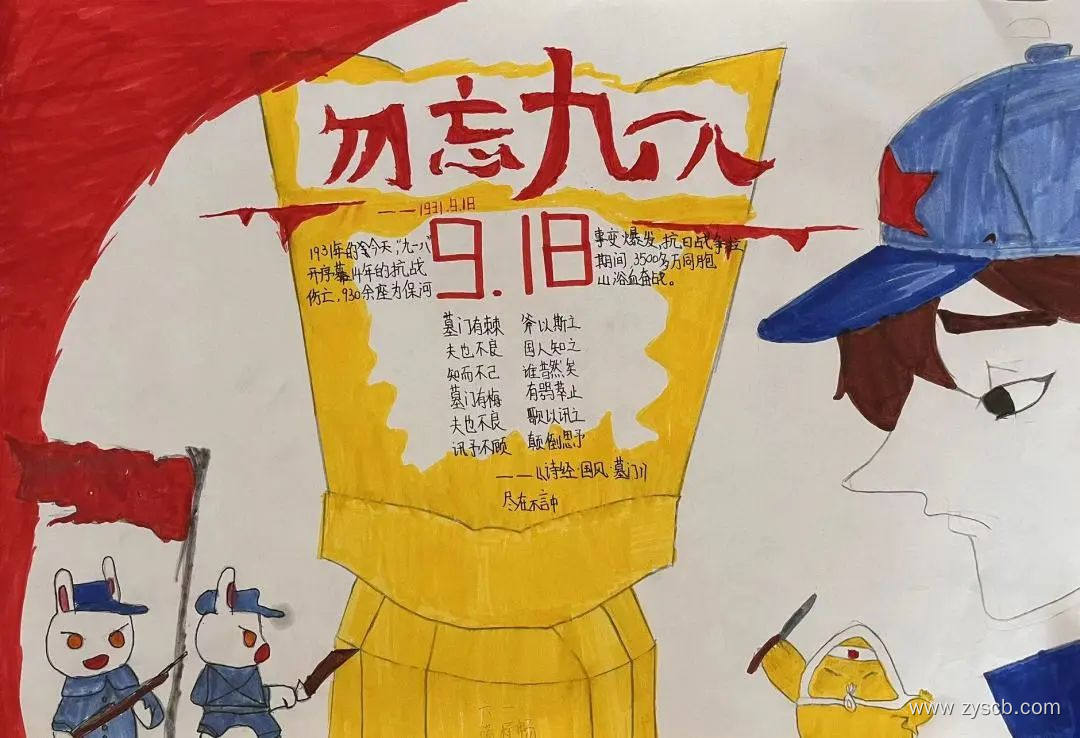 勿忘九一八
——1931.9.18
9.18
1931年的今天,"九一八"
事变爆发,抗日战争拉
开序幕14年的抗战
期间,3500多万同胞
伤亡,930余座为保河
山浴血奋战。
墓门有棘 斧以斯之
夫也不良 国人知之
知而不已 谁昔然矣
墓门有梅 有鸮萃止
夫也不良 歌以讯之
讯予不顾 颠倒思予
——《诗经·国风·墓门》
尽在不言中
www.zyscb.com